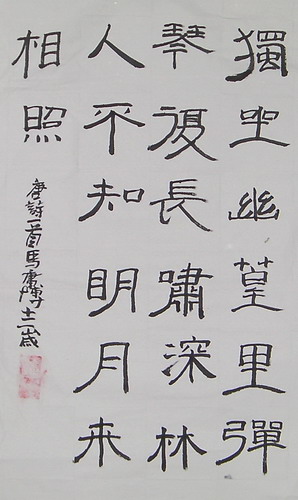 獨坐幽篁里彈
琴復長嘯深林
人不知明月来
相照
唐詩一首馬十二歲